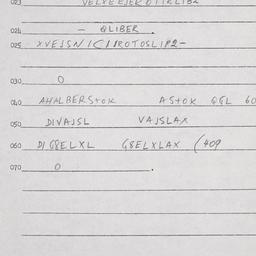 023
024 - QLIBER
025 XVEJSN/C/IROTOSLIP2-
030 O
040 AHALBERSTOK ASTOK QGL 60
050 DIVAJSL VAJSLAX
060 DIG8ELXL G8ELXLAX (409
070 O .